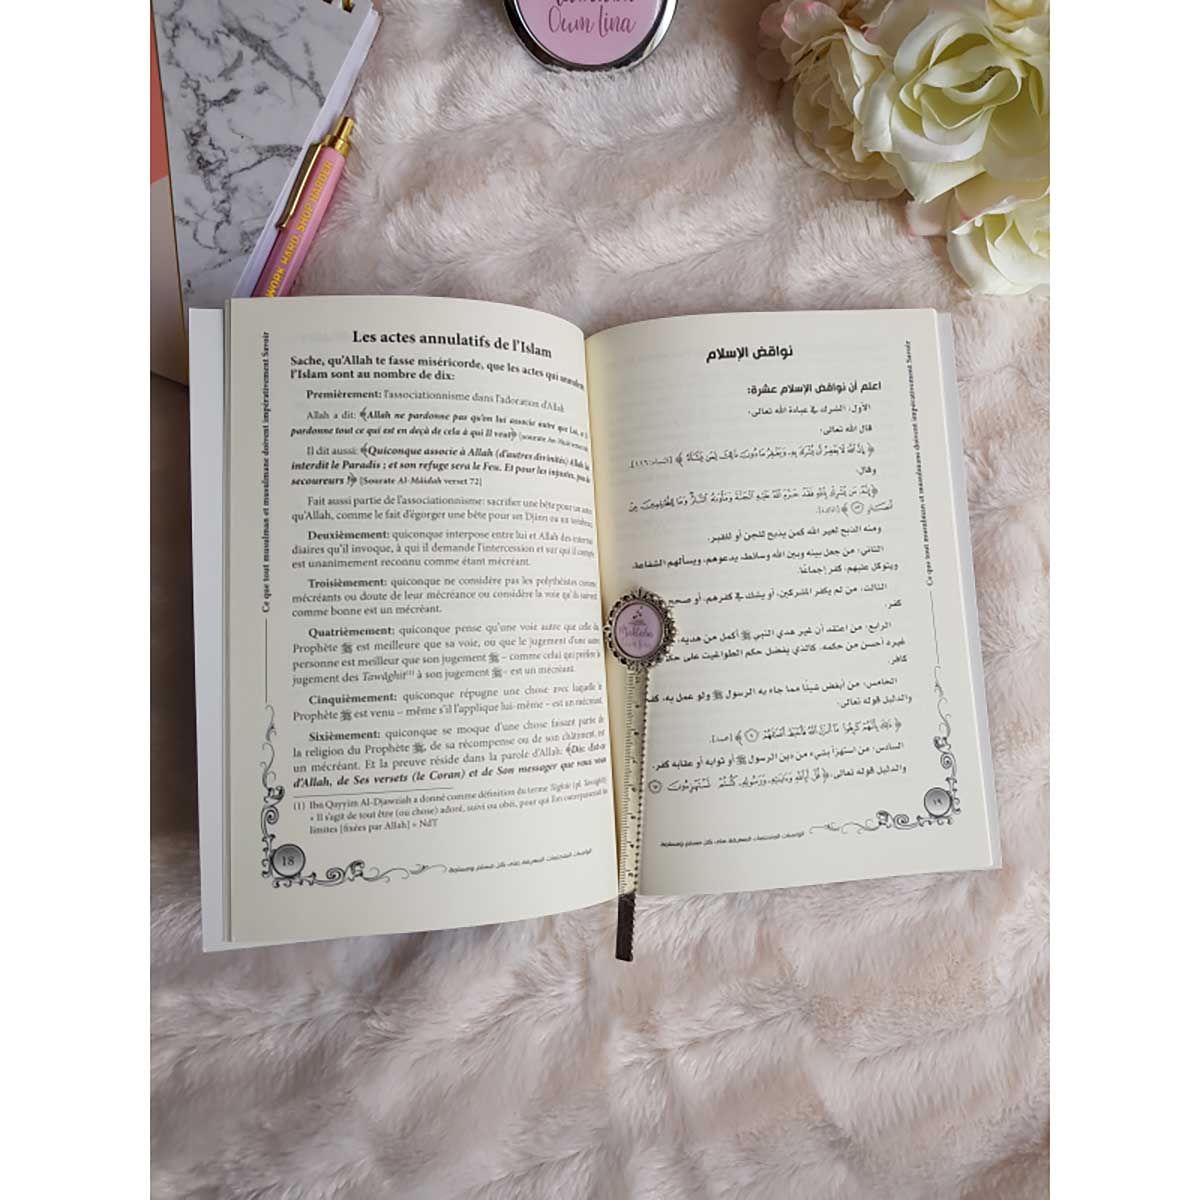 Oum Lina
WORK HARD. SHOP HARDER
Les actes annulatifs de l'Islam
Sache, qu'Allah te fasse miséricorde, que les actes qui annulent
l'Islam sont au nombre de dix:
Premièrement: l'associationnisme dans l'adoration d'Allah
Allah a dit: ﴾Allah ne pardonne pas qu'on lui associe autre que Lui,
pardonne tout ce qui est en deçà de cela à qui Il veut﴿ [sourate
Il dit aussi: ﴾Quiconque associe à Allah (d'autres divinités) Allah lui
interdit le Paradis ; et son refuge sera le Feu. Et pour les injustes, pas de
secoureurs !﴿ [Sourate Al-Mâidah verset 72]
Fait aussi partie de l'associationnisme: sacrifier une bête pour un autre
qu'Allah, comme le fait d'égorger une bête pour un Djinn ou un tombeau.
Deuxièmement: quiconque interpose entre lui et Allah des intermé-
diaires qu'il invoque, à qui il demande l'intercession et sur qui il compte
est unanimement reconnu comme étant mécréant.
Troisièmement: quiconque ne considère pas les polythéistes comme
mécréants ou doute de leur mécréance ou considère la voie qu'ils suivent
comme bonne est un mécréant.
Quatrièmement: quiconque pense qu'une voie autre que celle du
Prophète ﷺ est meilleure que sa voie, ou que le jugement d'une autre
personne est meilleur que son jugement ﷺ – comme celui qui préfère le
jugement des Tawâghît(1) à son jugement ﷺ – est un mécréant.
Cinquièmement: quiconque répugne une chose avec laquelle le
Prophète ﷺ est venu – même s'il l'applique lui-même – est un mécréant.
Sixièmement: quiconque se moque d'une chose faisant partie de
la religion du Prophète ﷺ, de sa récompense ou de son châtiment, est
un mécréant. Et la preuve réside dans la parole d'Allah: ﴾Dis: est-ce
d'Allah, de Ses versets (le Coran) et de Son messager que vous vous
(1) Ibn Qayyim Al-Djawziah a donné comme définition du terme Tâghût (pl. Tawâghît)
« Il s'agit de tout être (ou chose) adoré, suivi ou obéi, pour qui l'on outrepasse les
limites [fixées par Allah] » NdT
18
الواجبات المتحتمات المعرفة على كل مسلم ومسلمة
Ce que tout musulman et musulmane doivent impérativement Savoir
نواقض الإسلام
اعلم أن نواقض الإسلام عشرة:
الأول: الشرك في عبادة الله تعالى.
قال الله تعالى:
﴿ إِنَّ اللَّهَ لَا يَغْفِرُ أَنْ يُشْرَكَ بِهِ وَيَغْفِرُ مَا دُونَ ذَٰلِكَ لِمَنْ يَشَاءُ ﴾ [النساء:١١٦].
وقال:
﴿ إِنَّهُ مَنْ يُشْرِكْ بِاللَّهِ فَقَدْ حَرَّمَ اللَّهُ عَلَيْهِ الْجَنَّةَ وَمَأْوَاهُ النَّارُ وَمَا لِلظَّالِمِينَ مِنْ
أَنْصَارٍ ﴾ [المائدة].
ومنه الذبح لغير الله كمن يذبح للجن أو للقبر.
الثاني: من جعل بينه وبين الله وسائط، يدعوهم، ويسألهم الشفاعة،
ويتوكل عليهم، كفر إجماعًا.
الثالث: من لم يكفر المشركين، أو يشك في كفرهم، أو صحح
كفر.
الرابع: من اعتقد أن غير هدي النبي ﷺ أكمل من هديه،
غيره أحسن من حكمه، كالذي يفضل حكم الطواغيت على حكمه
كافر.
الخامس: من أبغض شيئًا مما جاء به الرسول ﷺ ولو عمل به، كفر
والدليل قوله تعالى:
﴿ ذَٰلِكَ بِأَنَّهُمْ كَرِهُوا مَا أَنْزَلَ اللَّهُ فَأَحْبَطَ أَعْمَالَهُمْ ٩ ﴾ [محمد].
السادس: من استهزأ بشيء من دين الرسول ﷺ أو ثوابه أو عقابه كفر.
والدليل قوله تعالى: ﴿ قُلْ أَبِاللَّهِ وَآيَاتِهِ وَرَسُولِهِ كُنْتُمْ تَسْتَهْزِئُونَ
١٩
الواجبات المتحتمات المعرفة على كل مسلم ومسلمة
Ce que tout musulman et musulmane doivent impérativement Savoir